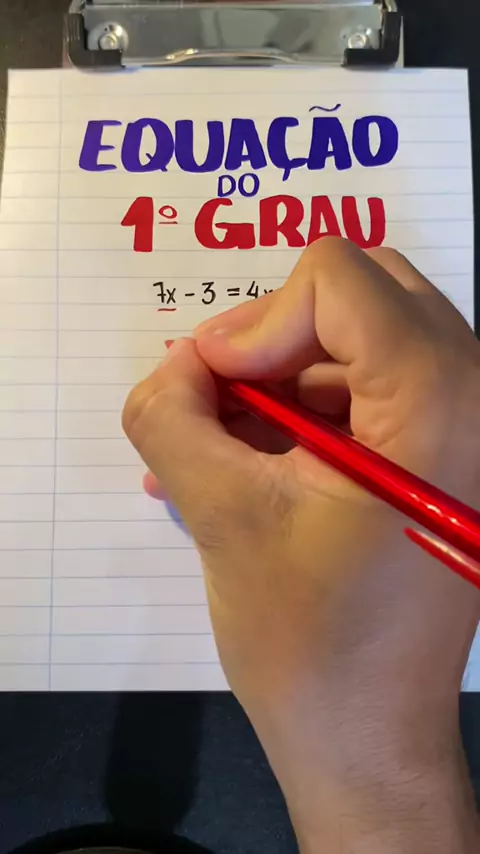 EQUAÇÃO
DO
1º GRAU
7x - 3 = 4x